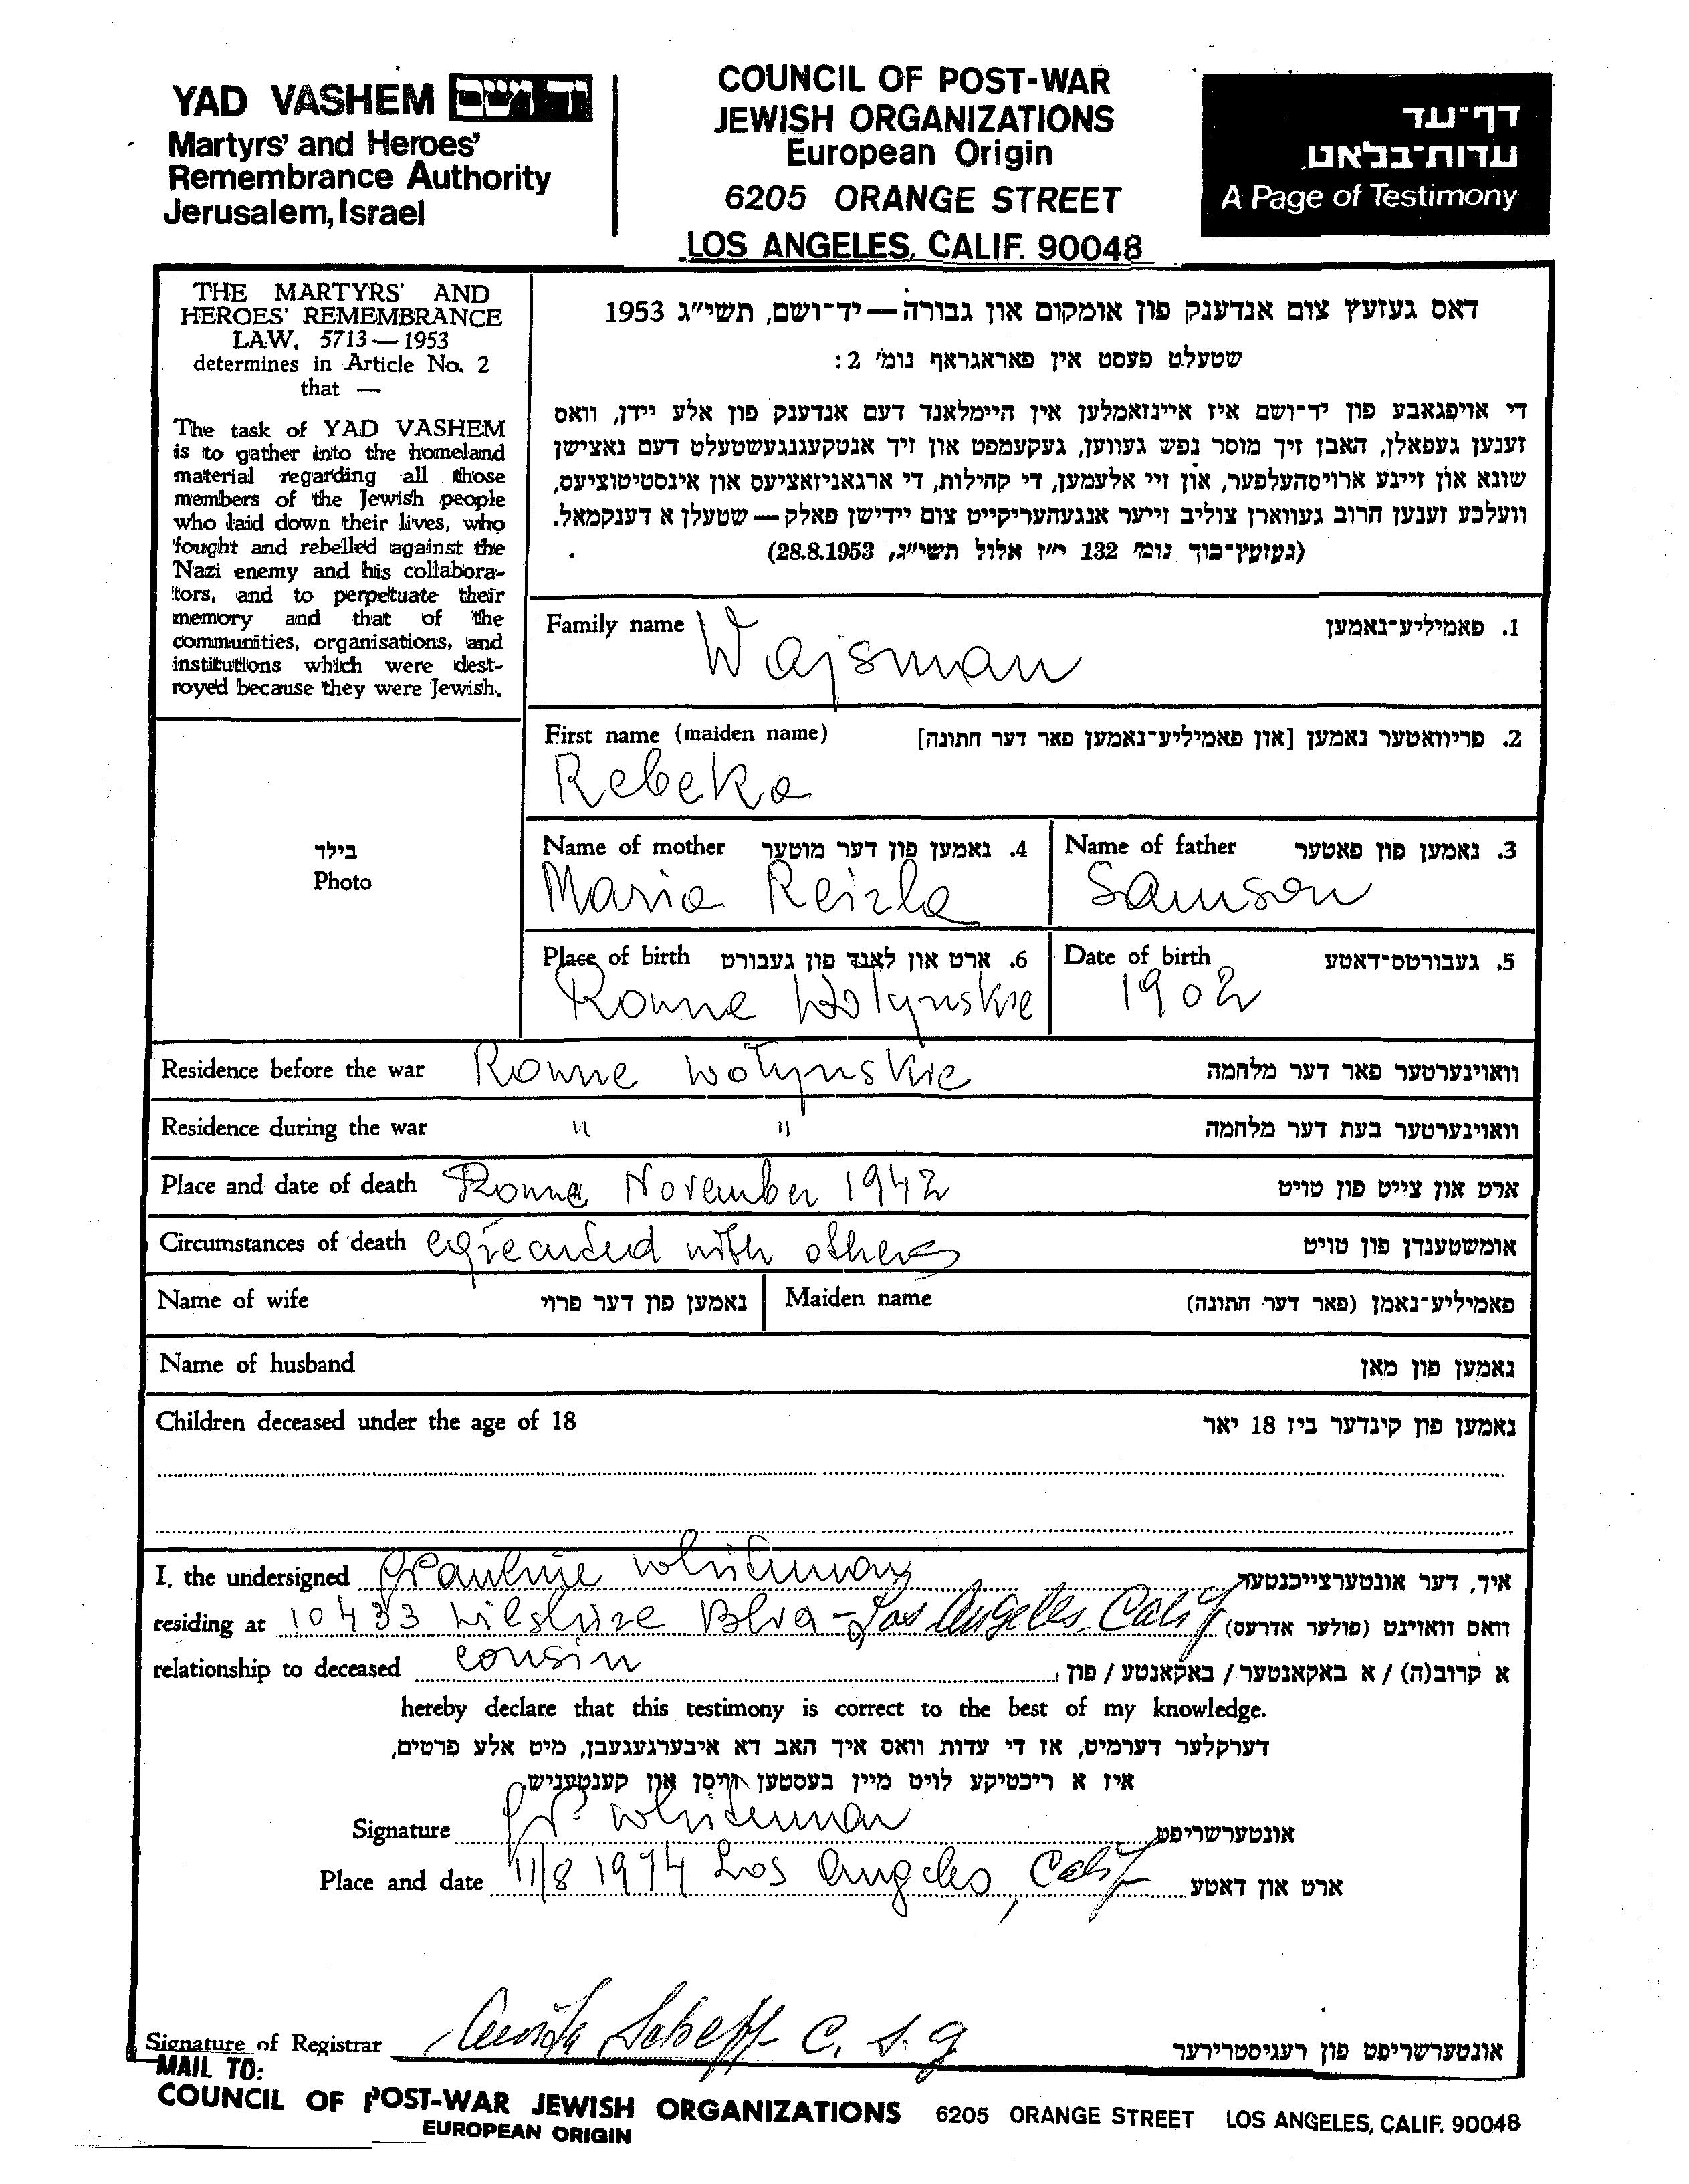 YAD VASHEM יד ושם
Martyrs' and Heroes'
Remembrance Authority
Jerusalem, Israel
COUNCIL OF POST-WAR
JEWISH ORGANIZATIONS
European Origin
6205 ORANGE STREET
LOS ANGELES, CALIF. 90048
דף-עד
עדות-בלאט
A Page of Testimony
THE MARTYRS' AND
HEROES' REMEMBRANCE
LAW, 5713—1953
determines in Article No. 2
that —
The task of YAD VASHEM
is to gather into the homeland
material regarding all those
members of the Jewish people
who laid down their lives, who
fought and rebelled against the
Nazi enemy and his collabora-
tors, and to perpetuate their
memory and that of the
communities, organisations, and
institutions which were dest-
royed because they were Jewish.
דאס געזעץ צום אנדענק פון אומקום און גבורה — יד-ושם, תשי"ג 1953
שטעלט פעסט אין פאראגראף נומ' 2:
די אויפגאבע פון יד-ושם איז איינזאמלען אין היימלאנד דעם אנדענק פון אלע יידן, וואס
זענען געפאלן, האבן זיך מוסר נפש געווען, געקעמפט און זיך אנטקעגנגעשטעלט דעם נאצישן
שונא און זיינע ארויסהעלפער, און זיי אלעמען, די קהילות, די ארגאניזאציעס און אינסטיטוציעס,
וועלכע זענען חרוב געווארן צוליב זייער אנגעהעריקייט צום יידישן פאלק — שטעלן א דענקמאל.
(געזעץ-בוך נומ' 132 י"ז אלול תשי"ג, 28.8.1953)
Family name Wajsman 1. פאמיליע-נאמען
First name (maiden name) 2. פריוואטער נאמען [און פאמיליע-נאמען פאר דער חתונה]
Rebeka
בילד
Photo
Name of mother 4. נאמען פון דער מוטער
Maria Reizla
Name of father 3. נאמען פון פאטער
Samson
Place of birth 6. ארט און לאנד פון געבורט
Rowne Wolynskie
Date of birth 5. געבורטס-דאטע
1902
Residence before the war Rowne Wołynskie וואוינערטער פאר דער מלחמה
Residence during the war " " וואוינערטער בעת דער מלחמה
Place and date of death Rowne November 1942 ארט און צייט פון טויט
Circumstances of death with others אומשטענדן פון טויט
Name of wife נאמען פון דער פרוי Maiden name פאמיליע-נאמן (פאר דער חתונה)
Name of husband נאמען פון מאן
Children deceased under the age of 18 נאמען פון קינדער ביז 18 יאר
I, the undersigned Pauline Whiteman איך, דער אונטערצייכנטער
residing at 10433 Wilshire Blvd - Los Angeles, Calif וואס וואוינט (פולער אדרעס)
relationship to deceased cousin א קרוב(ה) / א באקאנטער / באקאנטע / פון
hereby declare that this testimony is correct to the best of my knowledge.
דערקלער דערמיט, אז די עדות וואס איך האב דא איבערגעגעבן, מיט אלע פרטים,
איז א ריכטיקע לויט מיין בעסטען וויסן און קענטעניש.
Signature P. Whiteman אונטערשריפט
Place and date 11/8 1974 Los Angeles, Calif ארט און דאטע
Signature of Registrar C. S. G אונטערשריפט פון רעגיסטרירער
MAIL TO:
COUNCIL OF POST-WAR JEWISH ORGANIZATIONS 6205 ORANGE STREET LOS ANGELES, CALIF. 90048
EUROPEAN ORIGIN